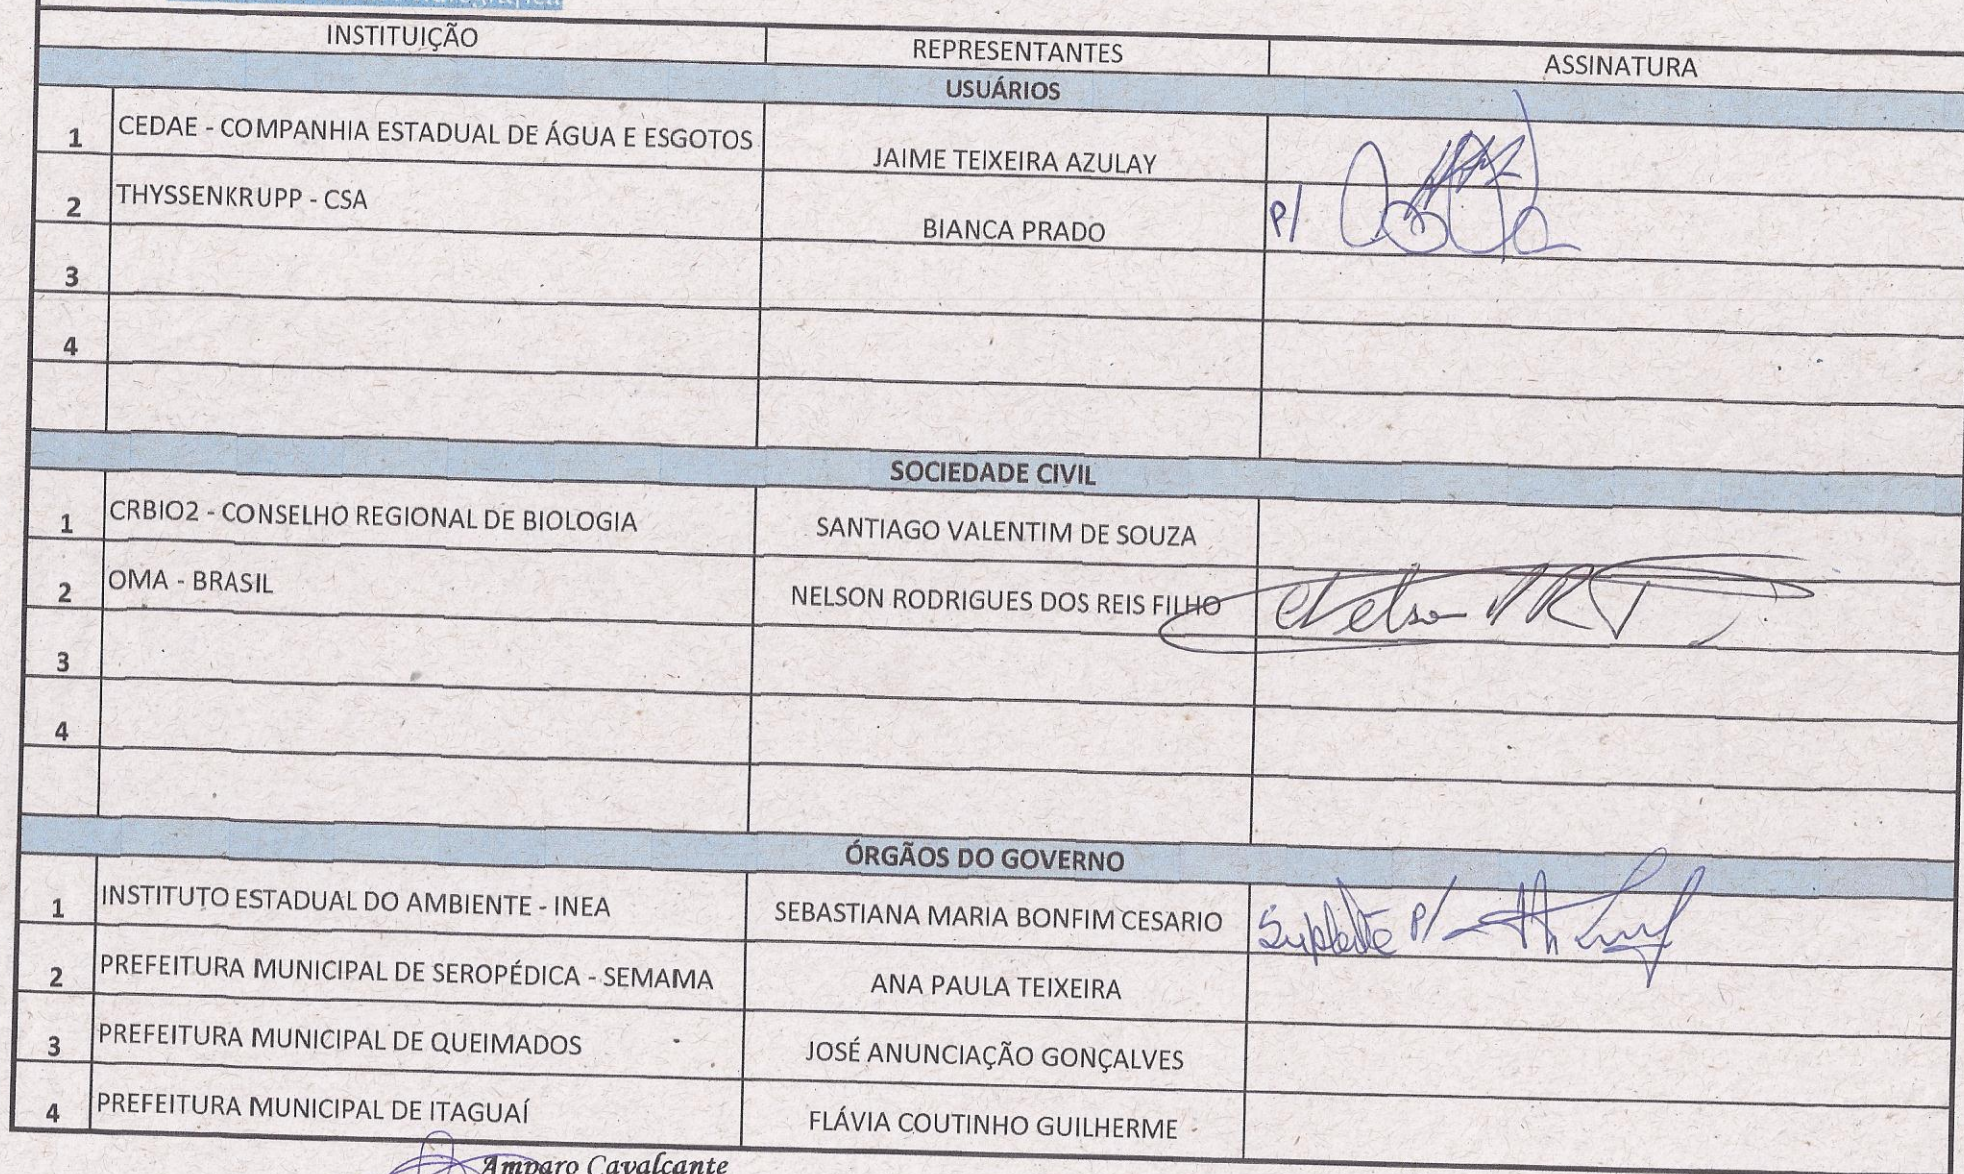 INSTITUIÇÃO REPRESENTANTES ASSINATURA
USUÁRIOS
1 CEDAE - COMPANHIA ESTADUAL DE ÁGUA E ESGOTOS JAIME TEIXEIRA AZULAY
2 THYSSENKRUPP - CSA BIANCA PRADO P/
3
4
SOCIEDADE CIVIL
1 CRBIO2 - CONSELHO REGIONAL DE BIOLOGIA SANTIAGO VALENTIM DE SOUZA
2 OMA - BRASIL NELSON RODRIGUES DOS REIS FILHO Nelson
3
4
ÓRGÃOS DO GOVERNO
1 INSTITUTO ESTADUAL DO AMBIENTE - INEA SEBASTIANA MARIA BONFIM CESARIO Suplente P/
2 PREFEITURA MUNICIPAL DE SEROPÉDICA - SEMAMA ANA PAULA TEIXEIRA
3 PREFEITURA MUNICIPAL DE QUEIMADOS JOSÉ ANUNCIAÇÃO GONÇALVES
4 PREFEITURA MUNICIPAL DE ITAGUAÍ FLÁVIA COUTINHO GUILHERME
Amparo Cavalcante